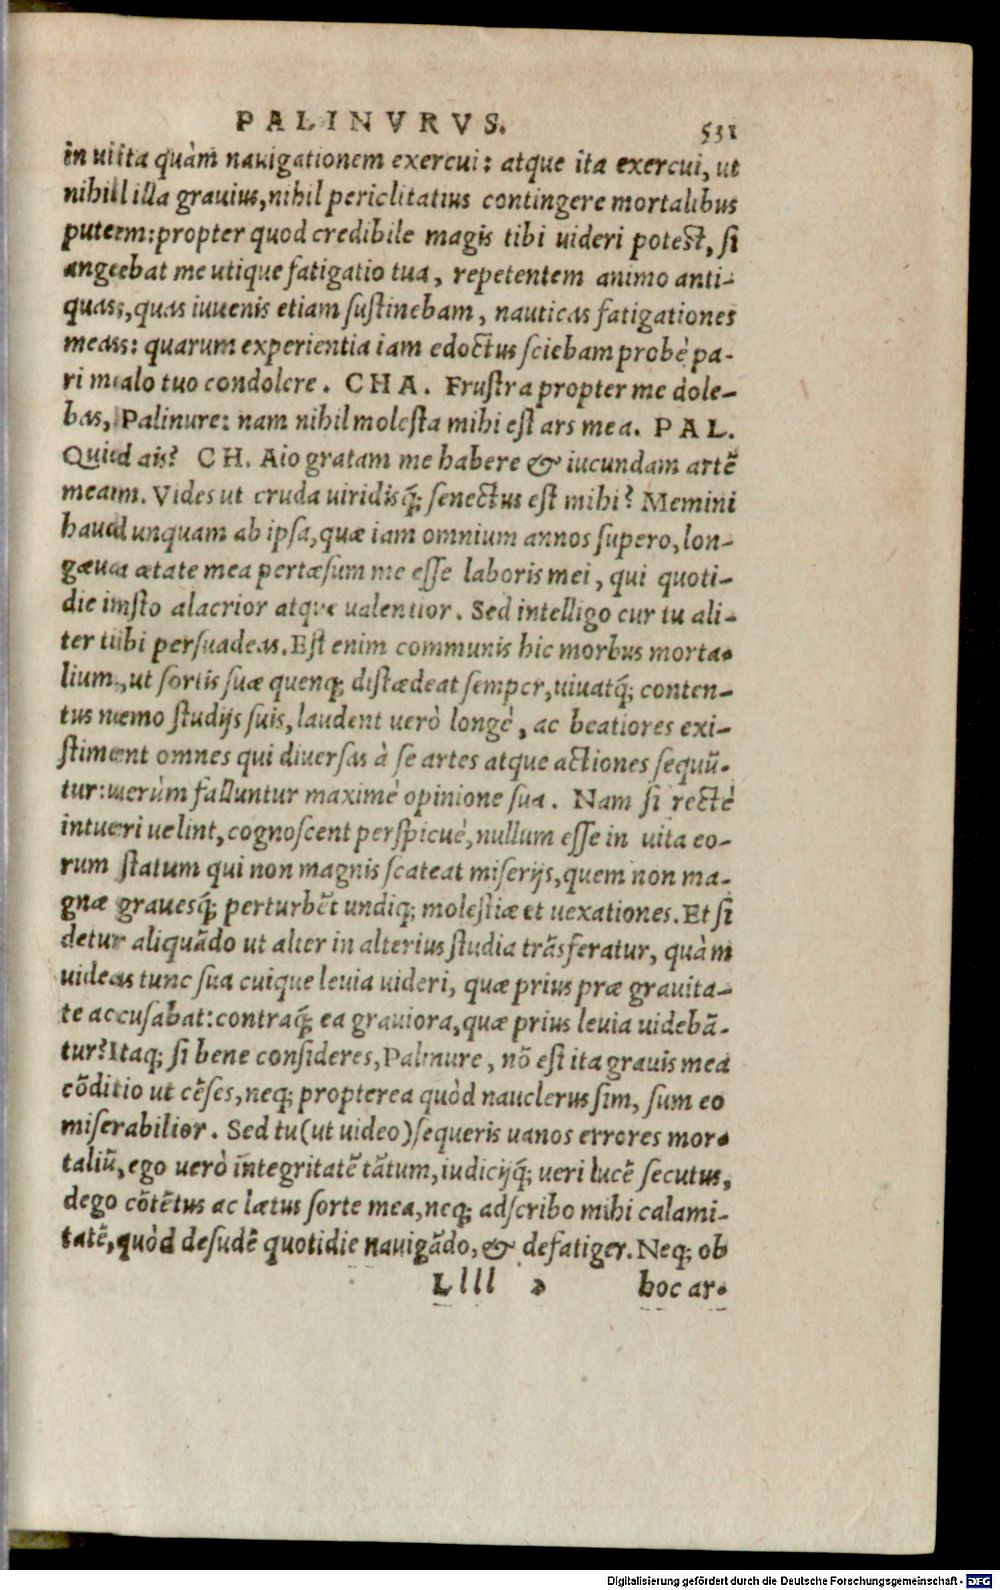 PALINVRVS. 531
in uita quàm nauigationem exercui: atque ita exercui, ut
nihil illa grauius, nihil periclitatius contingere mortalibus
putem: propter quod credibile magis tibi uideri potest, si
angebat me utique fatigatio tua, repetentem animo anti-
quas, quas iuuenis etiam sustinebam, nauticas fatigationes
meas: quarum experientia iam edoctus sciebam probè pa-
ri malo tuo condolere. CHA. Frustra propter me dole-
bas, Palinure: nam nihil molesta mihi est ars mea. PAL.
Quid ais? CH. Aio gratam me habere & iucundam artẽ
meam. Vides ut cruda uiridisq́; senectus est mihi? Memini
haud unquam ab ipsa, quæ iam omnium annos supero, lon-
gæua ætate mea pertæsum me esse laboris mei, qui quoti-
die insto alacrior atque ualentior. Sed intelligo cur tu ali-
ter tibi persuadeas. Est enim communis hic morbus morta-
lium, ut sortis suæ quenq; distædeat semper, uiuatq́; conten-
tus nemo studijs suis, laudent uerò longè, ac beatiores exi-
stiment omnes qui diuersas à se artes atque actiones sequũ-
tur: uerùm falluntur maximè opinione sua. Nam si rectè
intueri uelint, cognoscent perspicuè, nullum esse in uita eo-
rum statum qui non magnis scateat miserijs, quem non ma-
gnæ grauesq́; perturbẽt undiq; molestiæ et uexationes. Et si
detur aliquãdo ut alter in alterius studia trãsferatur, quàm
uideas tunc sua cuique leuia uideri, quæ prius præ grauita-
te accusabat: contraq́; ea grauiora, quæ prius leuia uidebã-
tur? Itaq; si bene consideres, Palinure, nõ est ita grauis mea
cõditio ut cẽses, neq; propterea quòd nauclerus sim, sum eo
miserabilior. Sed tu (ut uideo) sequeris uanos errores mor-
taliũ, ego uerò integritatẽ tãtum, iudicijq́; ueri lucẽ secutus,
dego cõtẽtus ac lætus sorte mea, neq; adscribo mihi calami-
tatẽ, quòd desudẽ quotidie nauigãdo, & defatiger. Neq; ob
Llll 2 hoc ar-
Digitalisierung gefördert durch die Deutsche Forschungsgemeinschaft - DFG